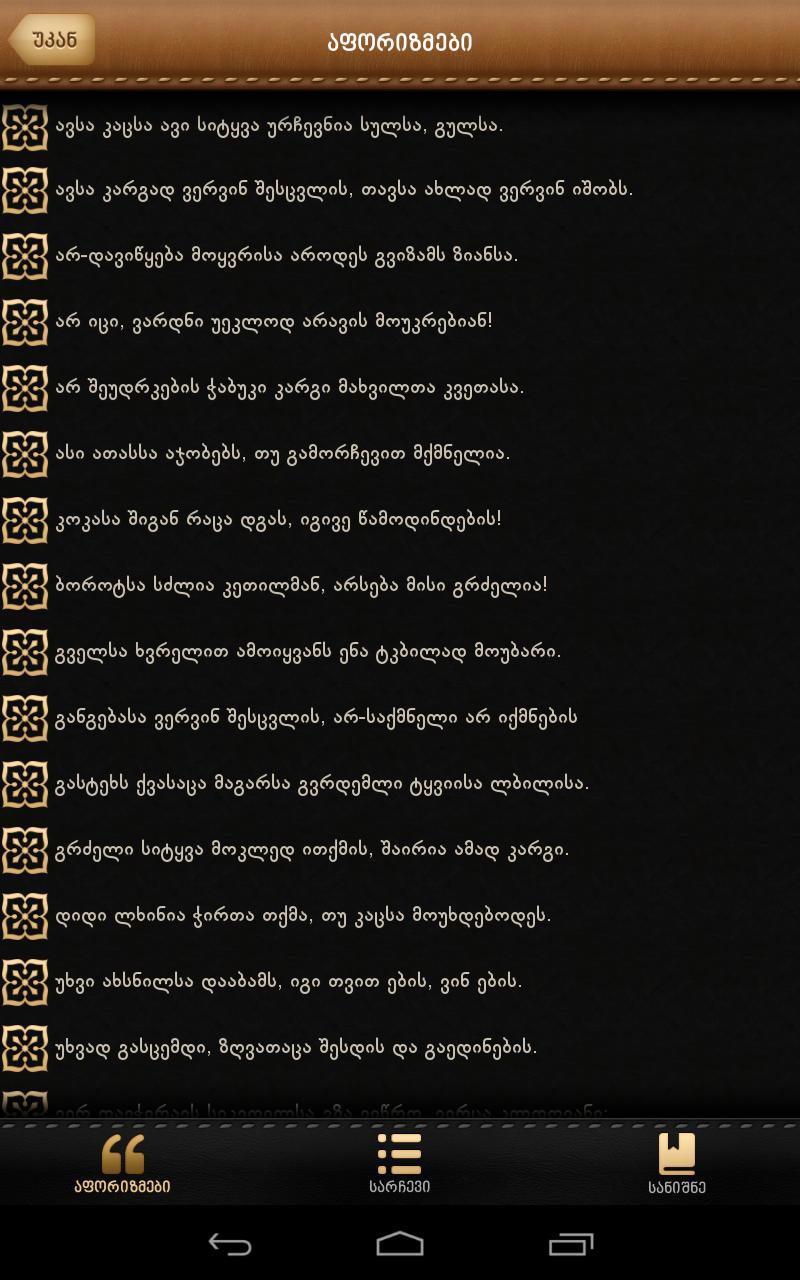 უკან
აფორიზმები
ავსა კაცსა ავი სიტყვა ურჩევნია სულსა, გულსა.
ავსა კარგად ვერვინ შესცვლის, თავსა ახლად ვერვინ იშობს.
არ-დავიწყება მოყვრისა აროდეს გვიზამს ზიანსა.
არ იცი, ვარდნი უეკლოდ არავის მოუკრებიან!
არ შეუდრკების ჭაბუკი კარგი მახვილთა კვეთასა.
ასი ათასსა აჯობებს, თუ გამორჩევით მქმნელია.
კოკასა შიგან რაცა დგას, იგივე წამოდინდების!
ბოროტსა სძლია კეთილმან, არსება მისი გრძელია!
გველსა ხვრელით ამოიყვანს ენა ტკბილად მოუბარი.
განგებასა ვერვინ შესცვლის, არ-საქმნელი არ იქმნების
გასტეხს ქვასაცა მაგარსა გვრდემლი ტყვიისა ლბილისა.
გრძელი სიტყვა მოკლედ ითქმის, შაირია ამად კარგი.
დიდი ლხინია ჭირთა თქმა, თუ კაცსა მოუხდებოდეს.
უხვი ახსნილსა დააბამს, იგი თვით ების, ვინ ების.
უხვად გასცემდი, ზღვათაცა შესდის და გაედინების.
აფორიზმები
სარჩევი
სანიშნე